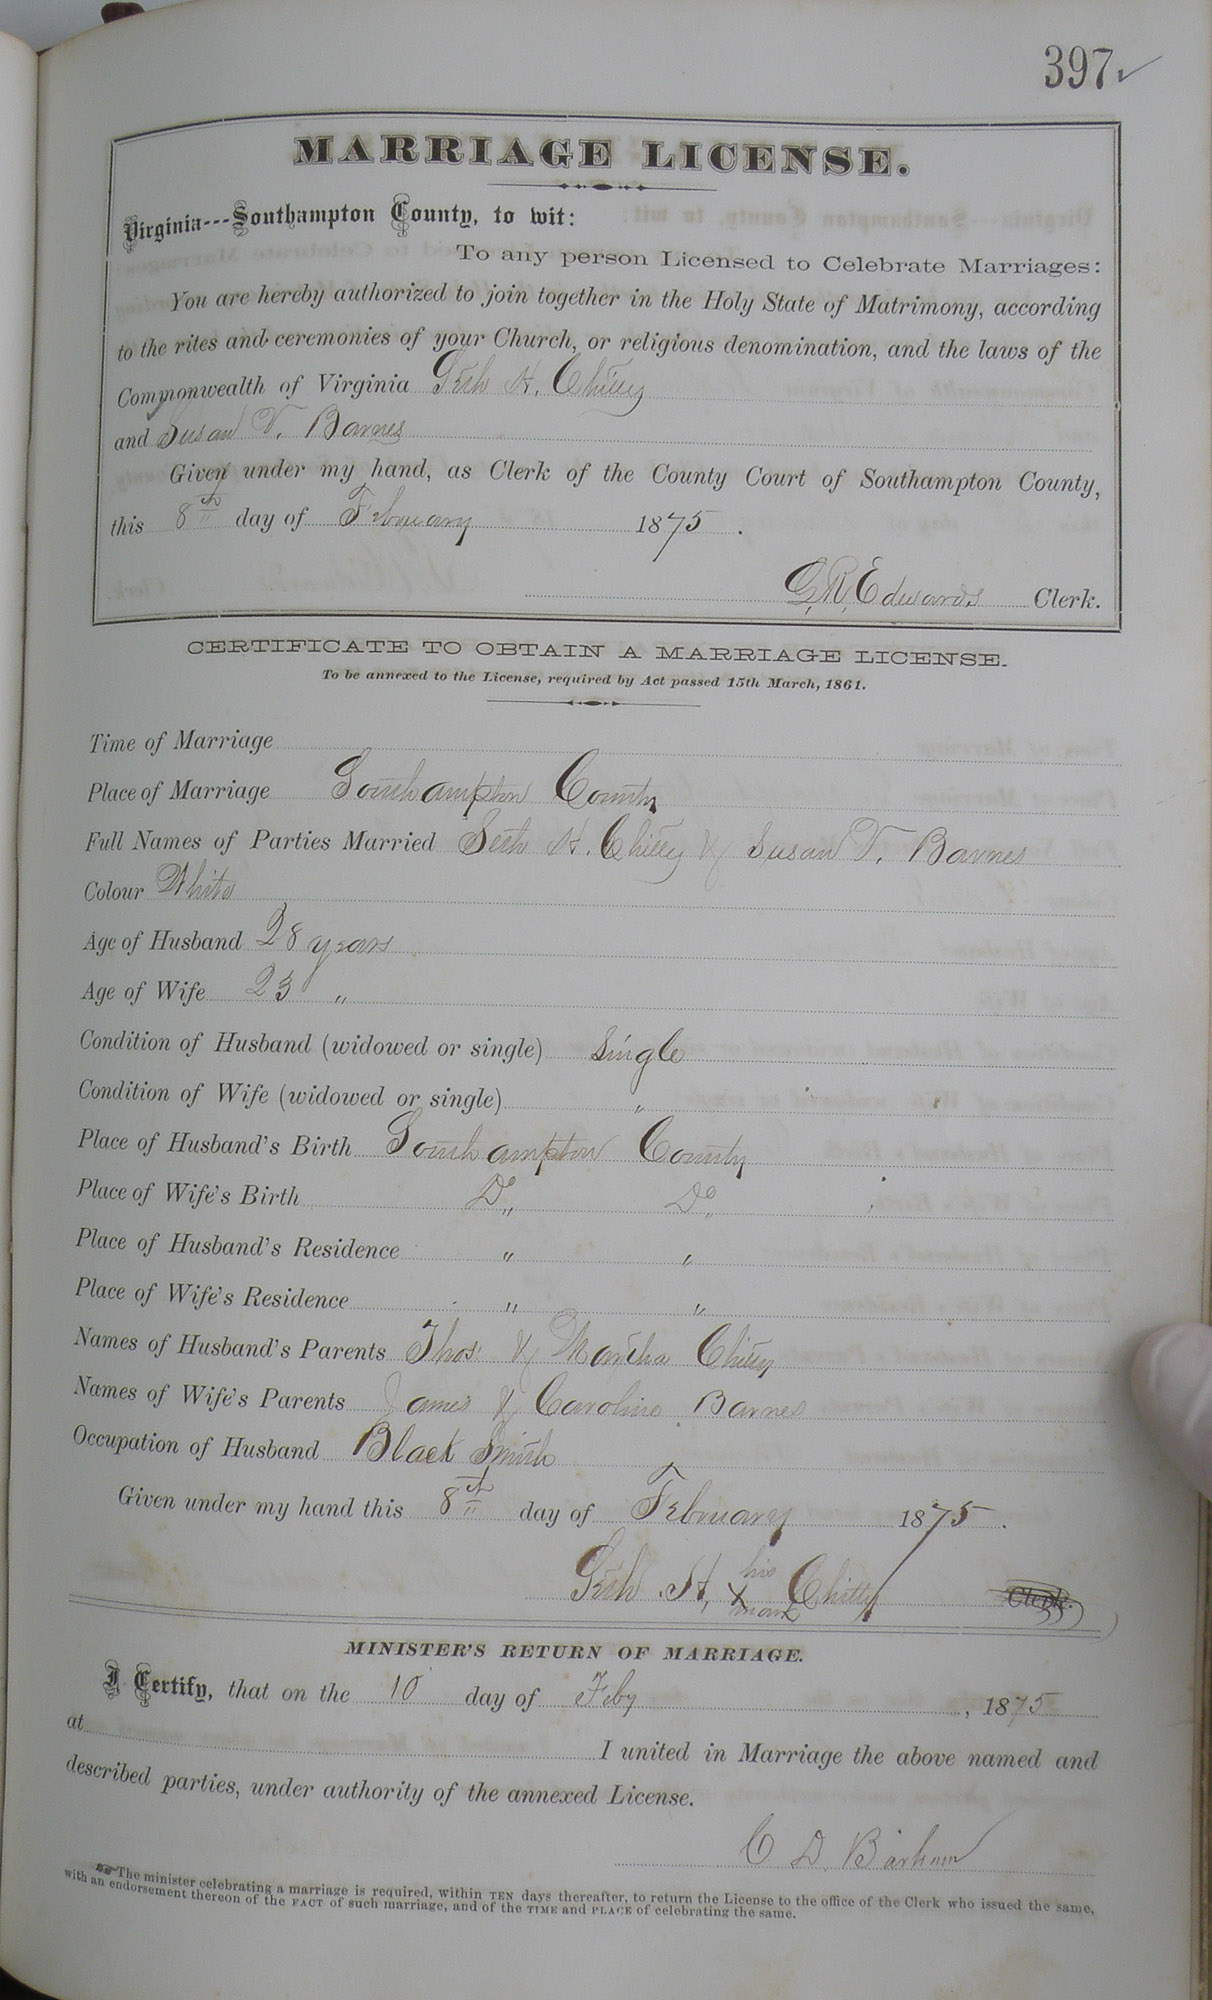 397
MARRIAGE LICENSE.
Virginia---Southampton County, to wit:
To any person Licensed to Celebrate Marriages:
You are hereby authorized to join together in the Holy State of Matrimony, according
to the rites and ceremonies of your Church, or religious denomination, and the laws of the
Commonwealth of Virginia Seth H. Chitty
and Susan V. Barnes
Given under my hand, as Clerk of the County Court of Southampton County,
this 8th day of February 1875.
G. R. Edwards Clerk.
CERTIFICATE TO OBTAIN A MARRIAGE LICENSE.
To be annexed to the License, required by Act passed 15th March, 1861.
Time of Marriage
Place of Marriage Southampton County
Full Names of Parties Married Seth H. Chitty & Susan V. Barnes
Colour White
Age of Husband 28 years
Age of Wife 23 "
Condition of Husband (widowed or single) Single
Condition of Wife (widowed or single) "
Place of Husband's Birth Southampton County
Place of Wife's Birth Do Do
Place of Husband's Residence " "
Place of Wife's Residence " "
Names of Husband's Parents Thos. & Martha Chitty
Names of Wife's Parents James & Caroline Barnes
Occupation of Husband Black Smith
Given under my hand this 8th day of February 1875.
Seth H. his X mark Chitty Clerk.
MINISTER'S RETURN OF MARRIAGE.
I Certify, that on the 10 day of Feby, 1875
at I united in Marriage the above named and
described parties, under authority of the annexed License.
C D. Barham
The minister celebrating a marriage is required, within TEN days thereafter, to return the License to the office of the Clerk who issued the same,
with an endorsement thereon of the FACT of such marriage, and of the TIME and PLACE of celebrating the same.